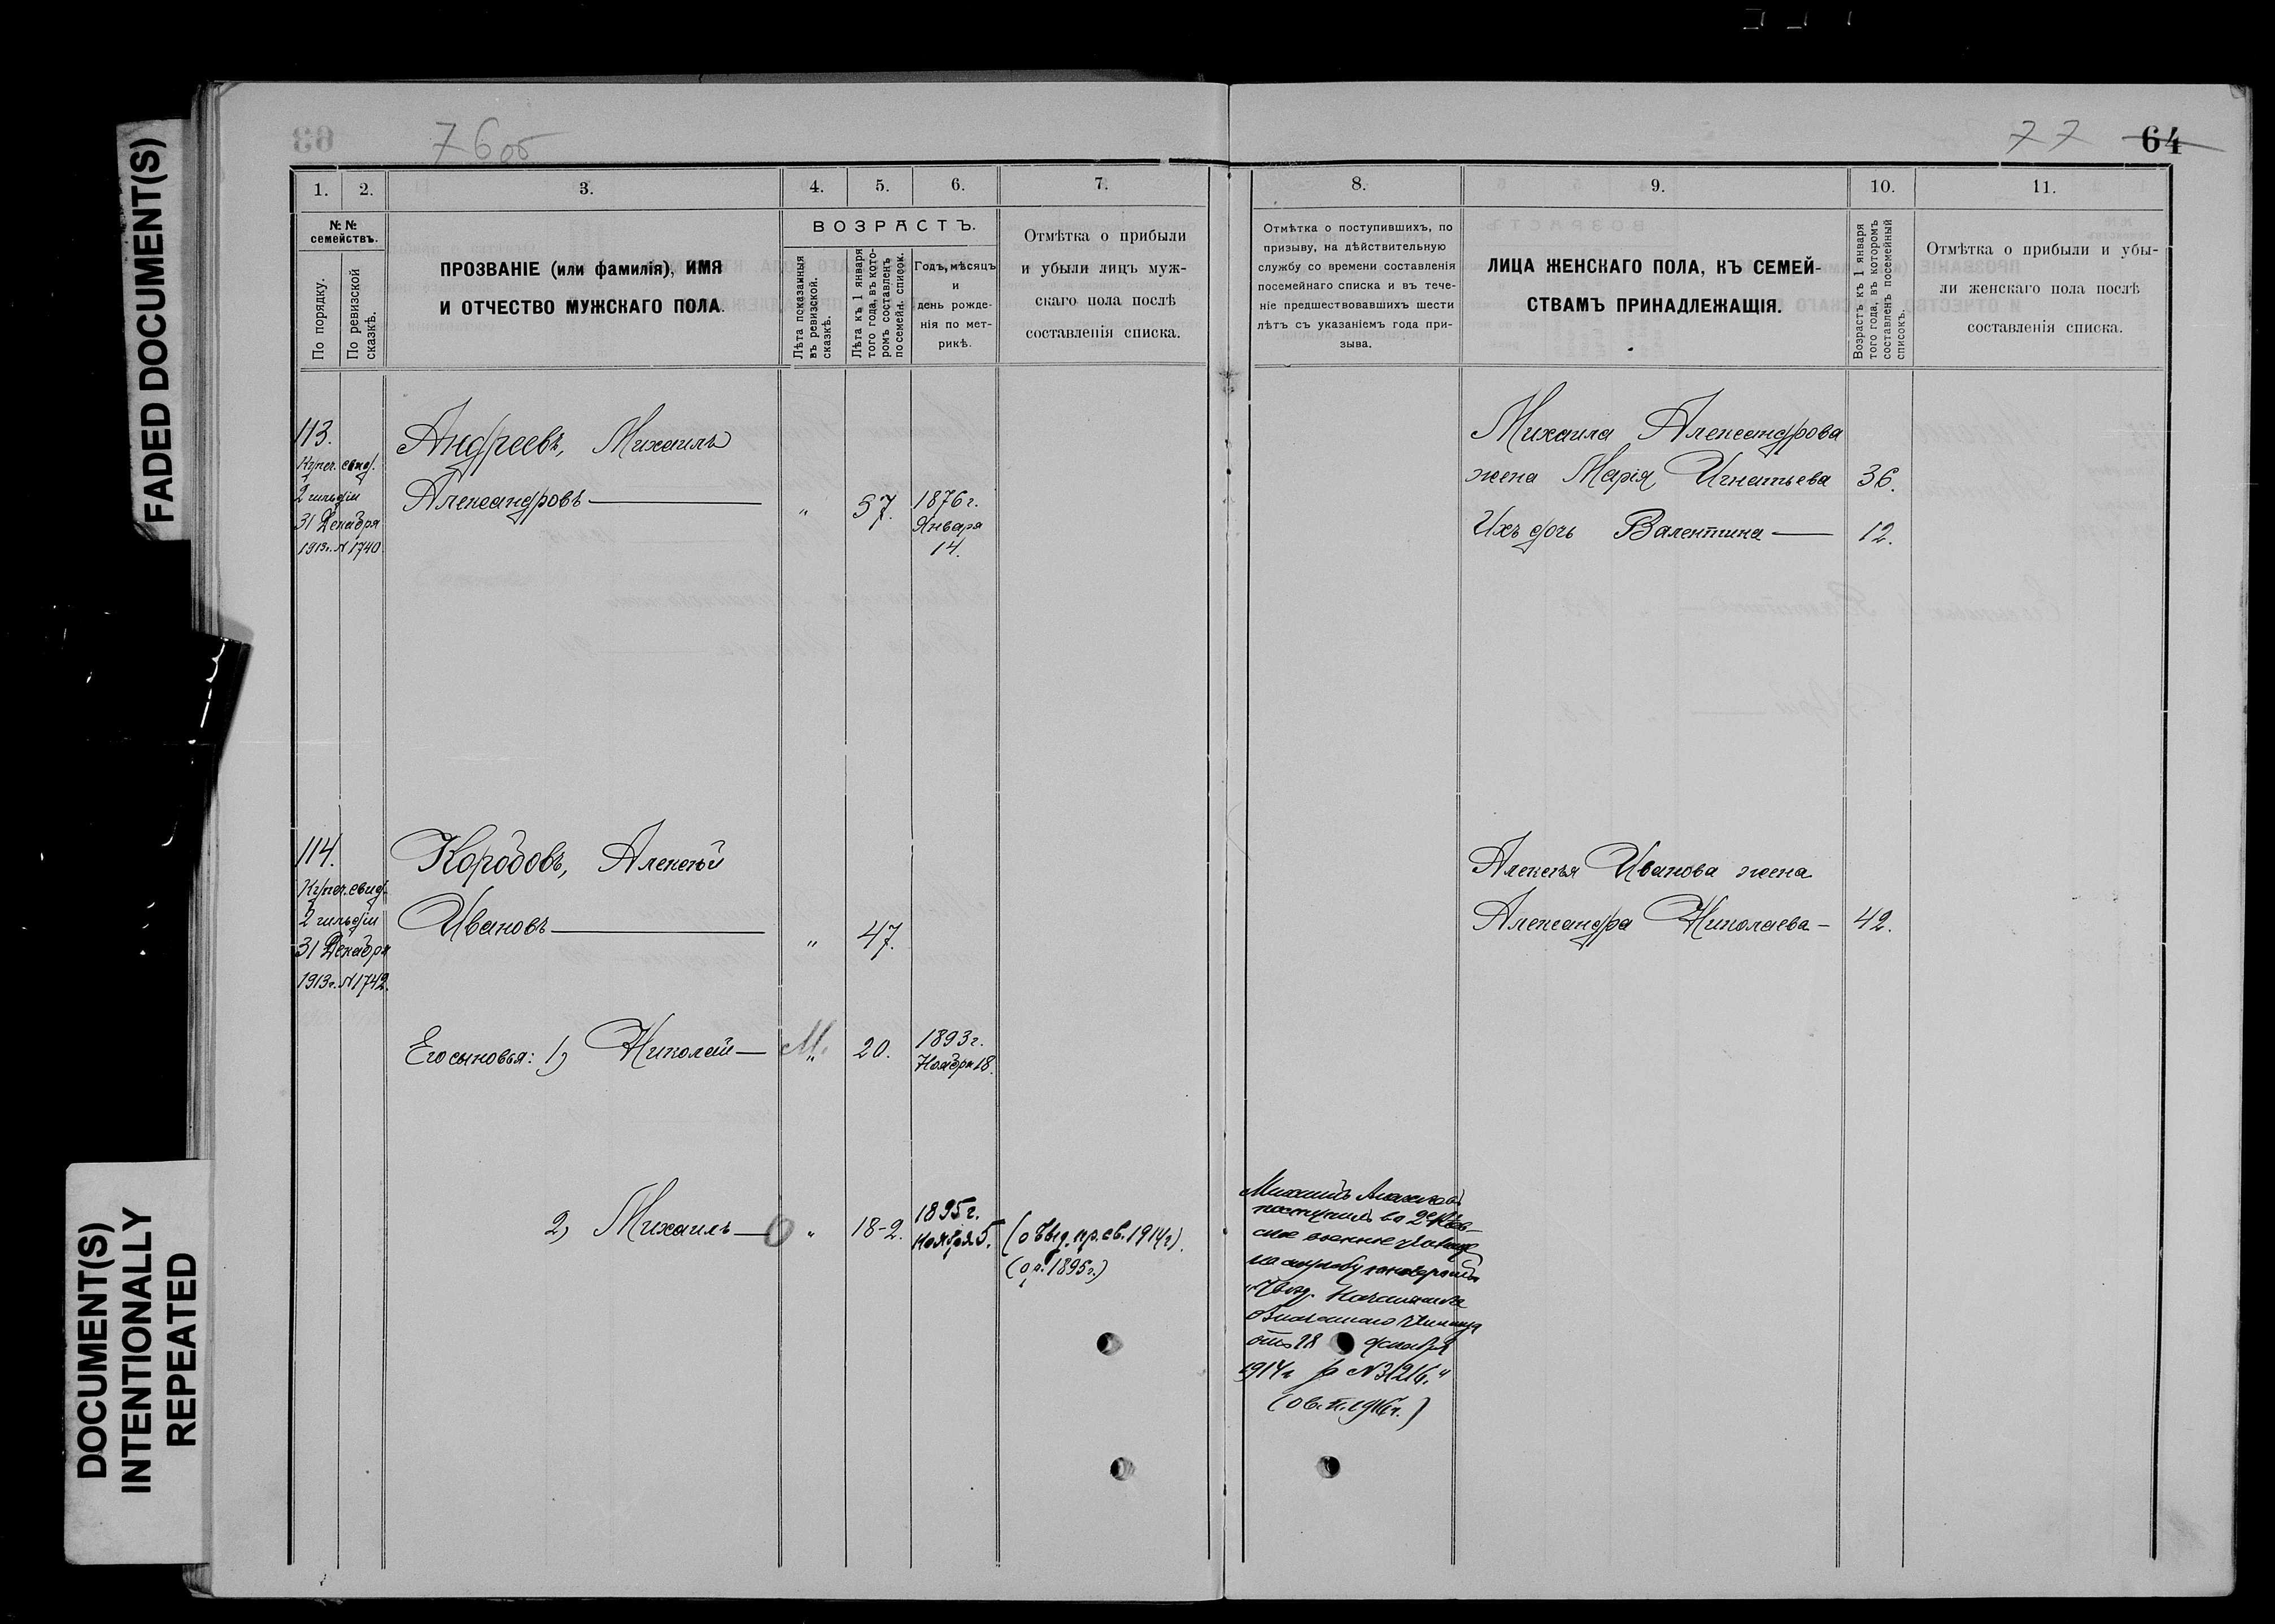 FADED DOCUMENT(S)
DOCUMENT(S)
INTENTIONALLY
REPEATED
76 об
77 64
1. 2. 3. 4. 5. 6. 7.
№ №
семействъ.
По порядку.
По ревизской
сказкѣ.
ПРОЗВАНІЕ (или фамилія), ИМЯ
И ОТЧЕСТВО МУЖСКАГО ПОЛА.
ВОЗРАСТЪ.
Лѣта показанныя
въ ревизской.
сказкѣ.
Лѣта къ 1 января
того года, въ кото-
ромъ составленъ
посемейн. список.
Годъ, мѣсяцъ
и
день рожде-
нія по мет-
рикѣ.
Отмѣтка о прибыли
и убыли лицъ муж-
скаго пола послѣ
составленія списка.
113.
Купеч. свид.
2 гильдіи
31 Декабря
1913г. № 1740
Андреевъ, Михаилъ
Александровъ — " 37. 1876г.
Января
14.
114.
Купеч. свид.
2 гильдіи
31 Декабря
1913г. № 1742.
Коробовъ, Алексѣй
Ивановъ — " 47.
Его сыновья: 1) Николай — М. " 20. 1893г.
Ноября 18.
2) Михаилъ — О " 18-2. 1895г.
Ноября 5. (о введ. пр. св. 1914г).
(о р. 1895г.)
8. 9. 10. 11.
Отмѣтка о поступившихъ, по
призыву, на дѣйствительную
службу со времени составленія
посемейнаго списка и въ тече-
ніе предшествовавшихъ шести
лѣтъ съ указаніемъ года при-
зыва.
ЛИЦА ЖЕНСКАГО ПОЛА, КЪ СЕМЕЙ-
СТВАМЪ ПРИНАДЛЕЖАЩІЯ.
Возрастъ къ 1 января
того года, въ которомъ
составленъ посемейный
списокъ.
Отмѣтка о прибыли и убы-
ли женскаго пола послѣ
составленія списка.
Михаила Александрова
жена Марія Игнатьева 36.
Ихъ дочь Валентина — 12.
Алексѣя Иванова жена
Александра Николаева — 42.
Михаилъ
поступилъ во 2е
военное
на службу
Начальника
отъ 28 декабря
1914г за № 31216."